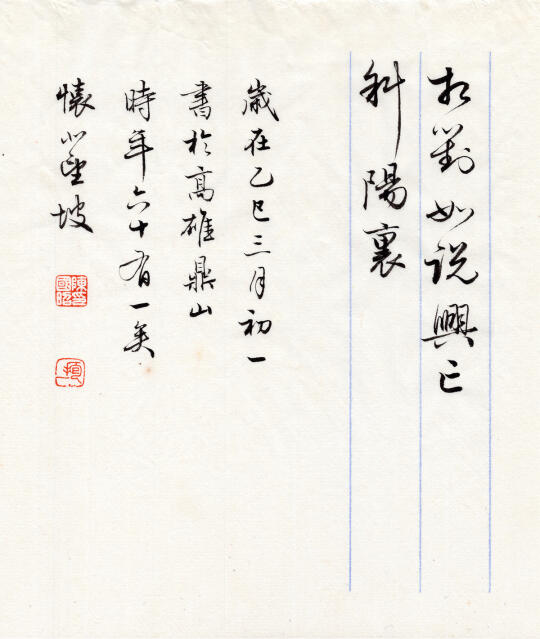 相對如說興亡
斜陽裏
歲在乙巳三月初一
書於高雄鼎山
時年六十有一矣
懷坡